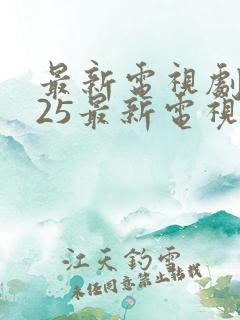 最新電視劇
25最新電視
江天釣雪
未經同意禁止轉載